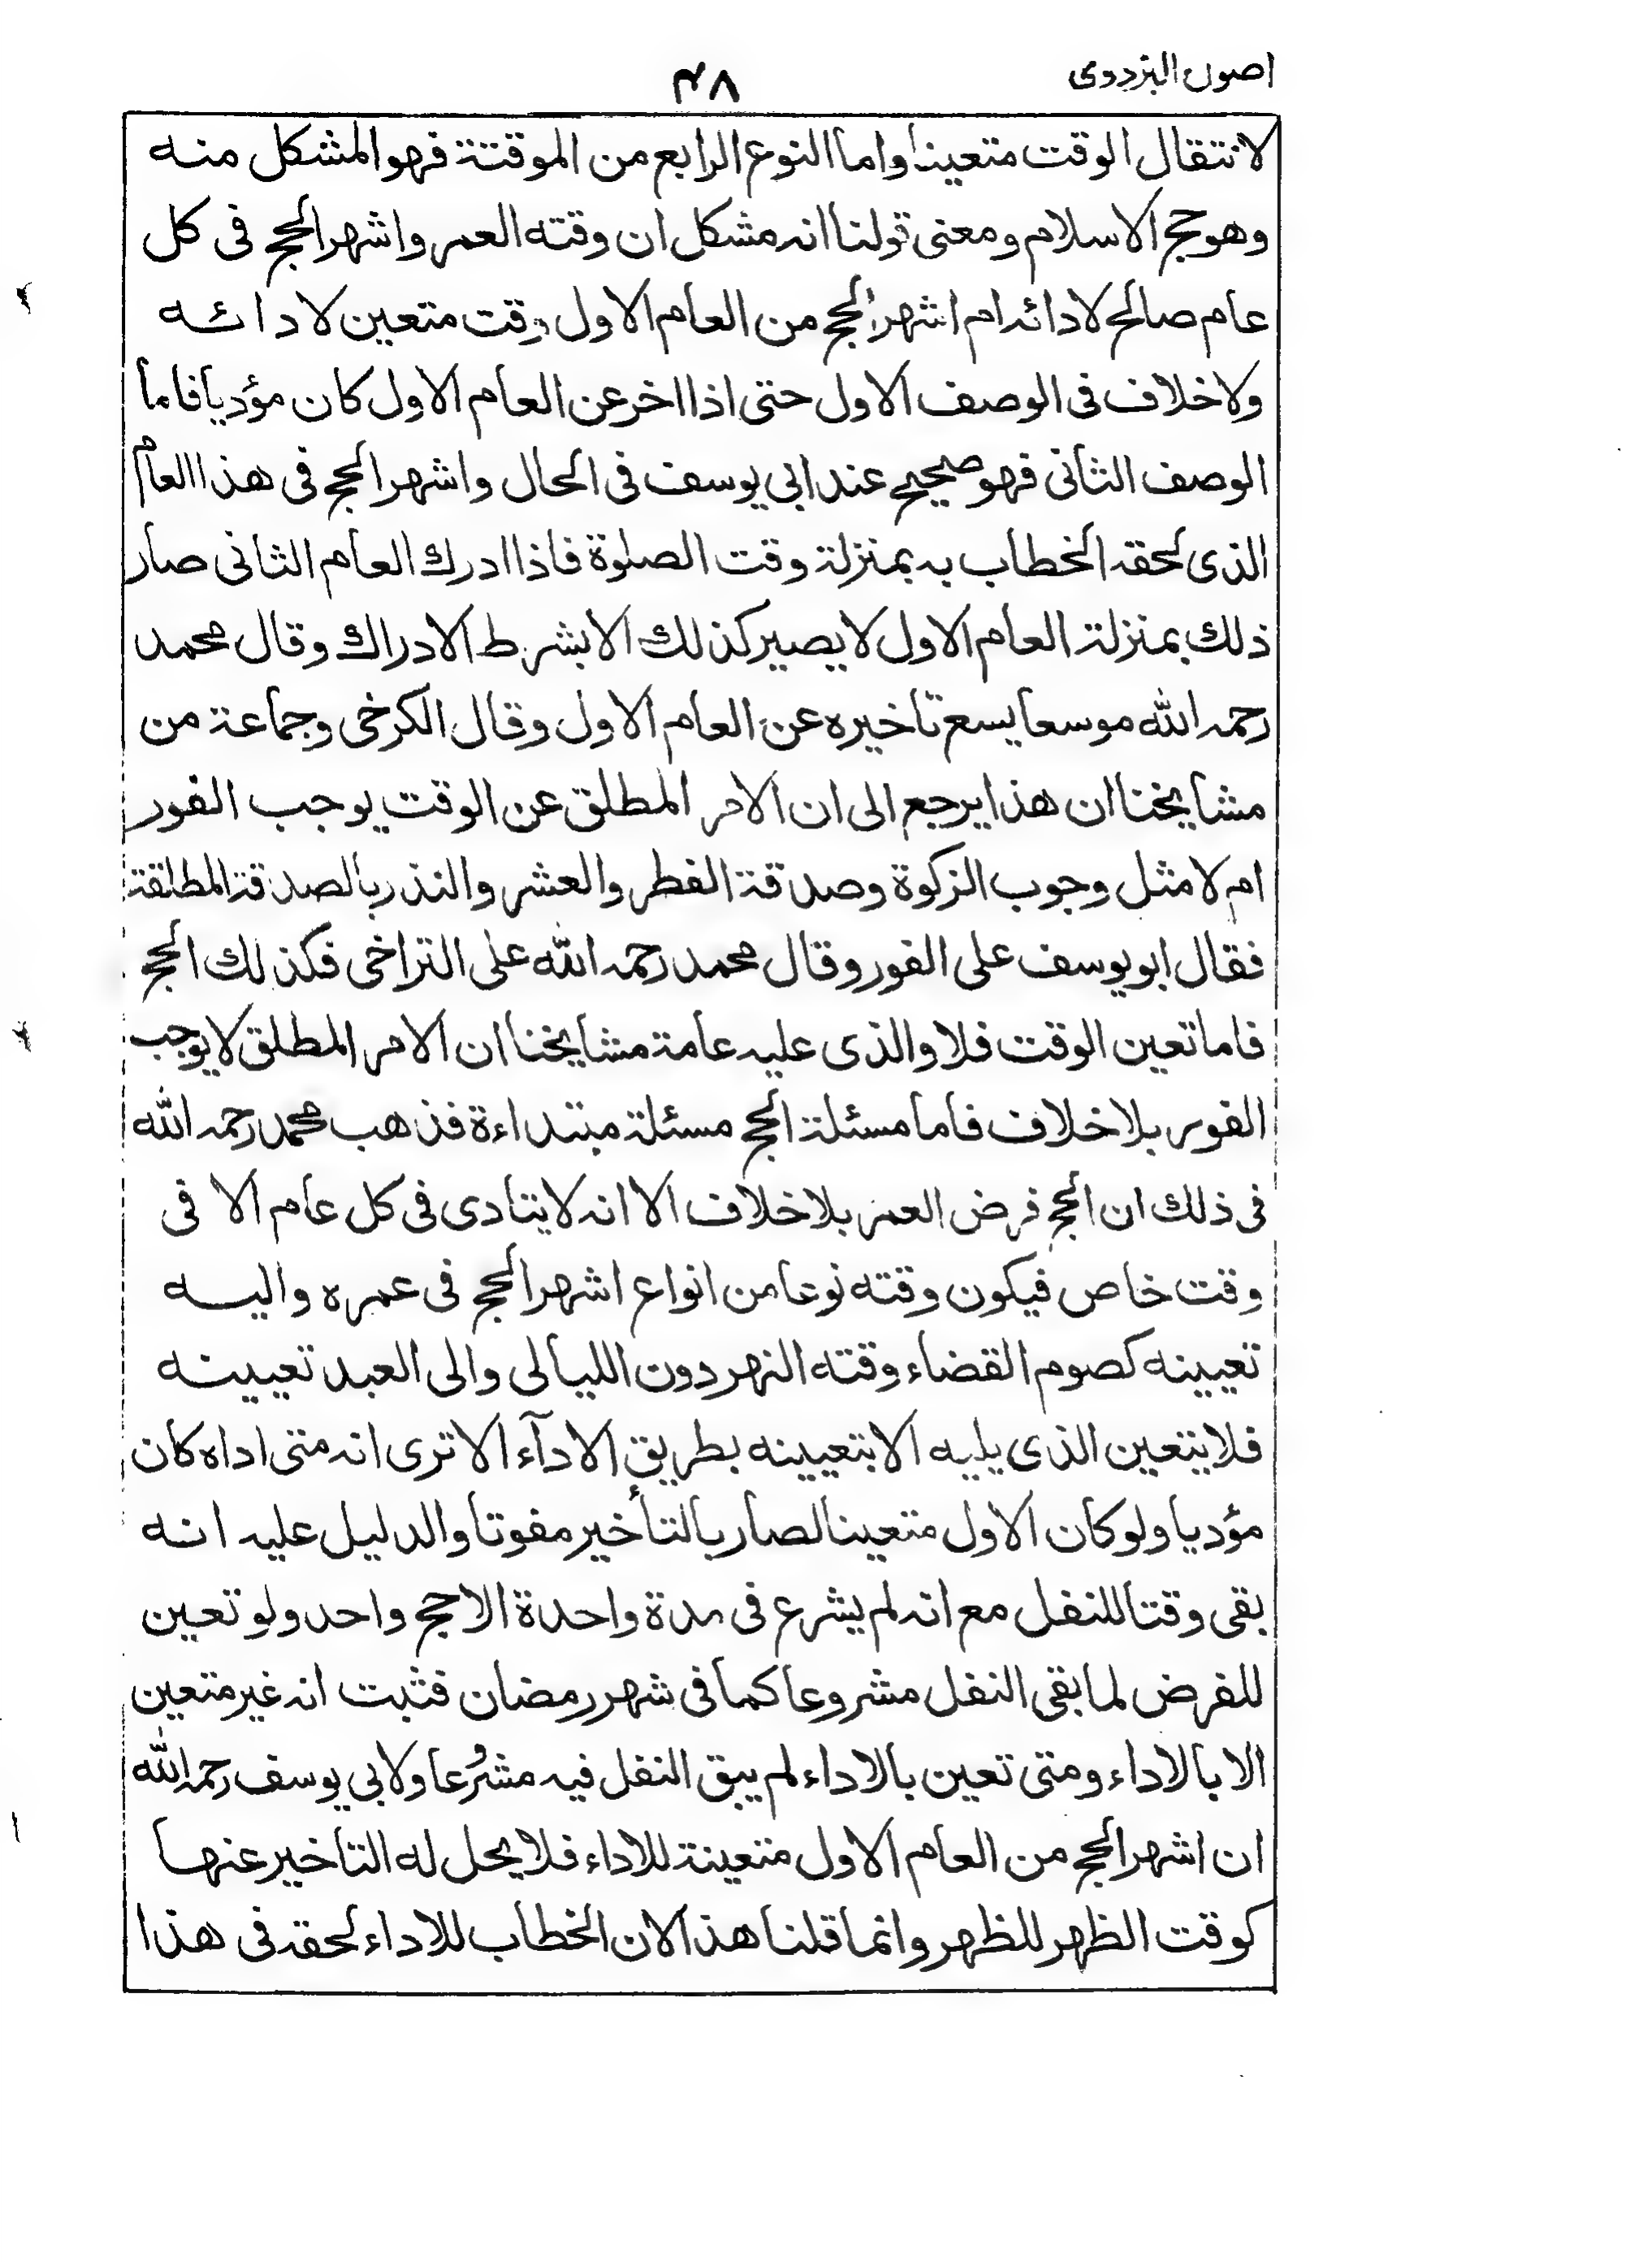 اصول البزدوى
٤٨
لانتقال الوقت متعينا واما النوع الرابع من الموقتة فهو المشكل منه
وهو حج الاسلام ومعنى قولنا انه مشكل ان وقته العمر واشهر الحج فى كل
عام صالح لادائه ام اشهر الحج من العام الاول وقت متعين لادائه
ولاخلاف فى الوصف الاول حتى اذا اخر عن العام الاول كان مؤديا فاما
الوصف الثانى فهو صحيح عند ابي يوسف فى الحال واشهر الحج فى هذا العام
الذى لحقه الخطاب به بمنزلة وقت الصلوة فاذا ادرك العام الثانى صار
ذلك بمنزلة العام الاول لا يصير كذلك الا بشرط الادراك وقال محمد
رحمه الله موسعا يسع تاخيره عن العام الاول وقال الكرخى وجماعة من
مشايخنا ان هذا يرجع الى ان الامر المطلق عن الوقت يوجب الفور
ام لا مثل وجوب الزكوة وصدقة الفطر والعشر والنذر بالصدقة المطلقة
فقال ابو يوسف على الفور وقال محمد رحمه الله على التراخى فكذلك الحج
فاما تعين الوقت فلا والذى عليه عامة مشايخنا ان الامر المطلق لا يوجب
الفور بلا خلاف فاما مسئلة الحج مسئلة مبتداءة فذهب محمد رحمه الله
فى ذلك ان الحج فرض العمر بلا خلاف الا انه لا يتادى فى كل عام الا فى
وقت خاص فيكون وقته نوعا من انواع اشهر الحج فى عمره واليه
تعيينه كصوم القضاء وقته النهر دون الليالى والى العبد تعيينه
فلا يتعين الذى يليه الا بتعيينه بطريق الادآء الا ترى انه متى اداه كان
مؤديا ولو كان الاول متعينا لصار بالتأخير مفوتا والدليل عليه انه
بقى وقتا للنفل مع انه لم يشرع فى مدة واحدة الا حج واحد ولو تعين
للفرض لما بقى النفل مشروعا كما فى شهر رمضان فثبت انه غير متعين
الا بالاداء ومتى تعين بالاداء لم يبق النفل فيه مشروعا ولابي يوسف رحمه الله
ان اشهر الحج من العام الاول متعينة للاداء فلا يحل له التاخير عنها
كوقت الظهر للظهر وانما قلنا هذا لان الخطاب للاداء لحقه فى هذا